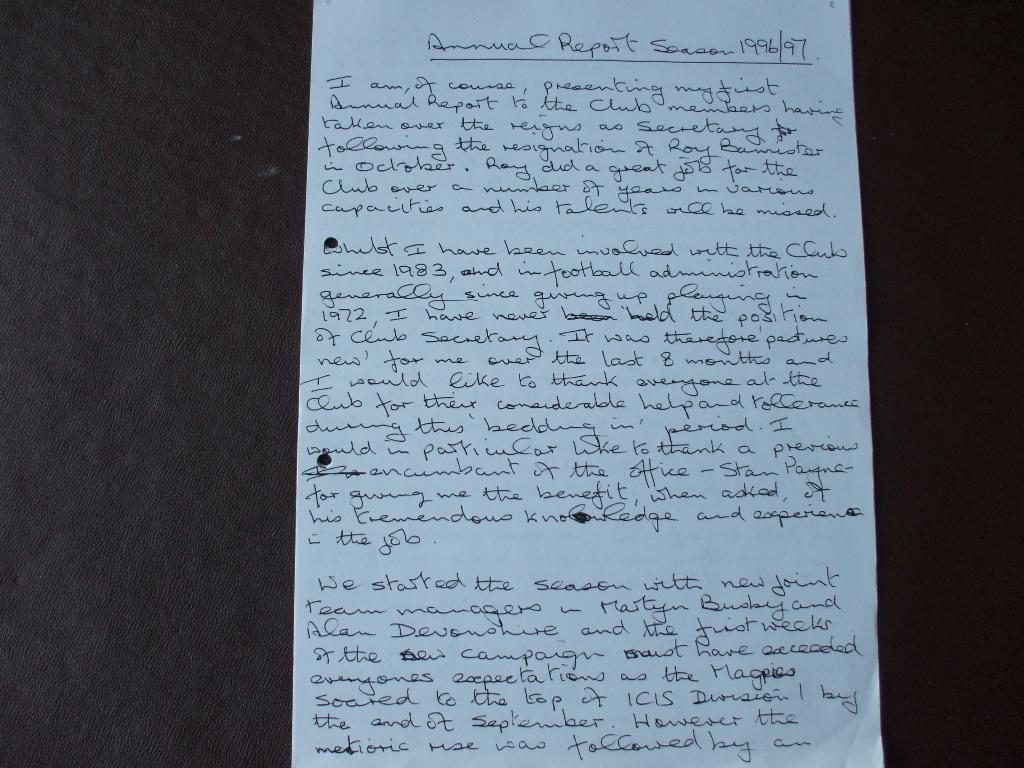 Annual Report Season 1996/97.
I am, of course, presenting my first
Annual Report to the Club members having
taken over the reigns as Secretary
following the resignation of Roy Bannister
in October. Roy did a great job for the
Club over a number of years in various
capacities and his talents will be missed.
Whilst I have been involved with the Club
since 1983, and in football administration
generally since giving up playing in
1972, I have never been held the position
of Club Secretary. It was therefore 'pastures
new' for me over the last 8 months and
I would like to thank everyone at the
Club for their considerable help and tollerance
during this 'bedding in' period. I
would in particular like to thank a previous
encumbant of the office - Stan Payne -
for giving me the benefit, when asked, of
his tremendous knowledge and experience
in the job.
We started the season with new joint
team managers in Martyn Busby and
Alan Devonshire and the first weeks
of the new campaign must have exceeded
everyones expectations as the Magpies
soared to the top of ICIS Division 1 by
the end of September. However the
metioric rise was followed by an